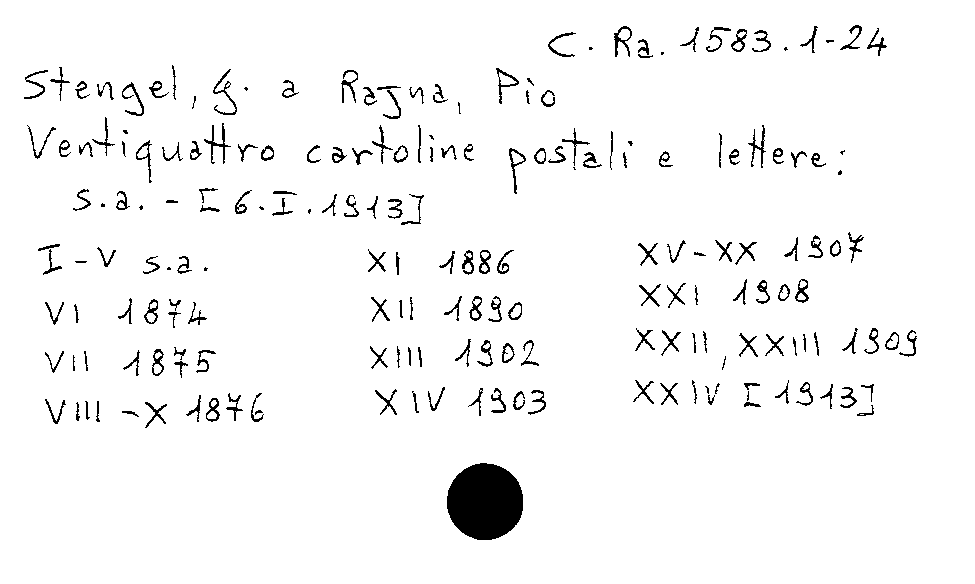 C. Ra. 1583.1-24
Stengel, G. a Rajna, Pio
Ventiquattro cartoline postali e lettere:
s.a. - [6.I.1913]
I-V s.a.
VI 1874
VII 1875
VIII-X 1876
XI 1886
XII 1890
XIII 1902
XIV 1903
XV-XX 1907
XXI 1908
XXII, XXIII 1909
XXIV [1913]